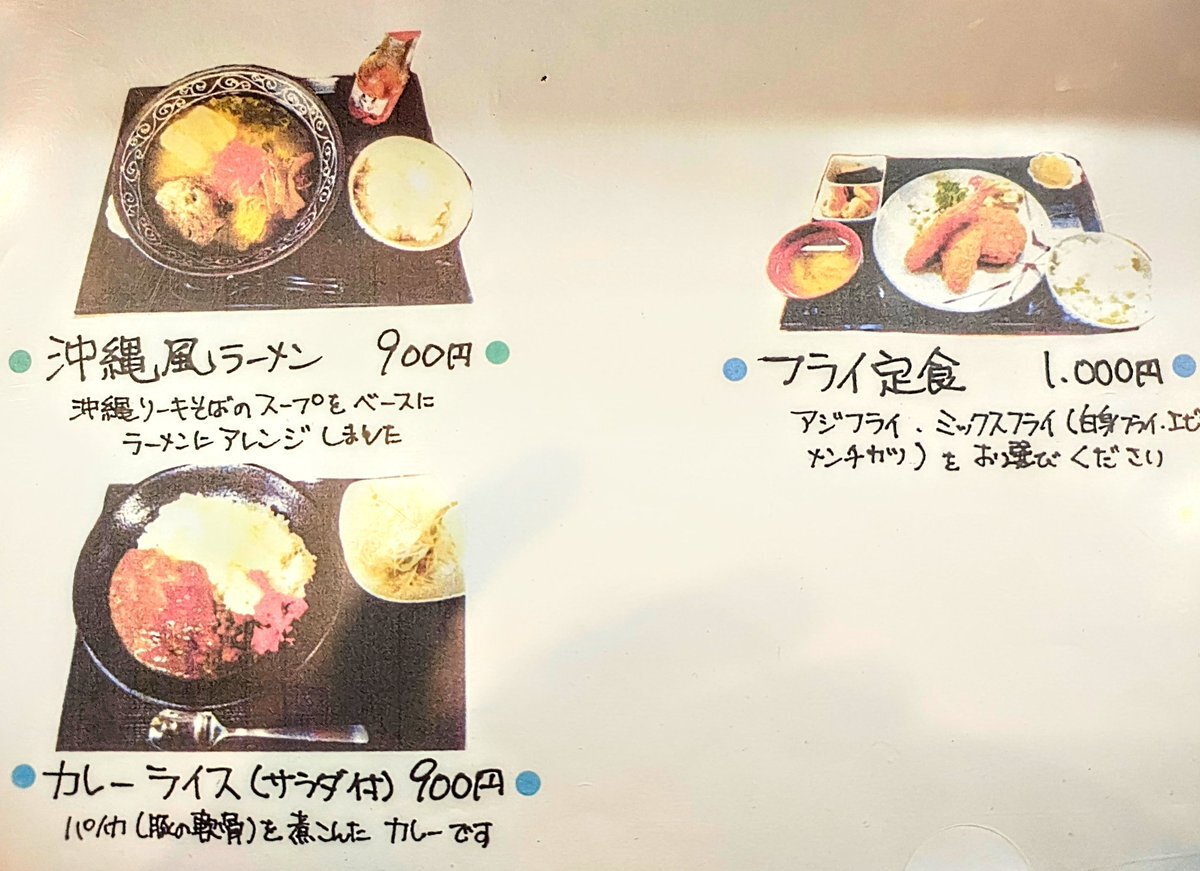 沖縄風ラーメン 900円
沖縄ソーキそばのスープをベースに
ラーメンにアレンジしました
カレーライス(サラダ付) 900円
パイカ(豚の軟骨)を煮こんだ カレーです
フライ定食 1.000円
アジフライ、ミックスフライ(白身フライ・エビ
メンチカツ)を お選びください